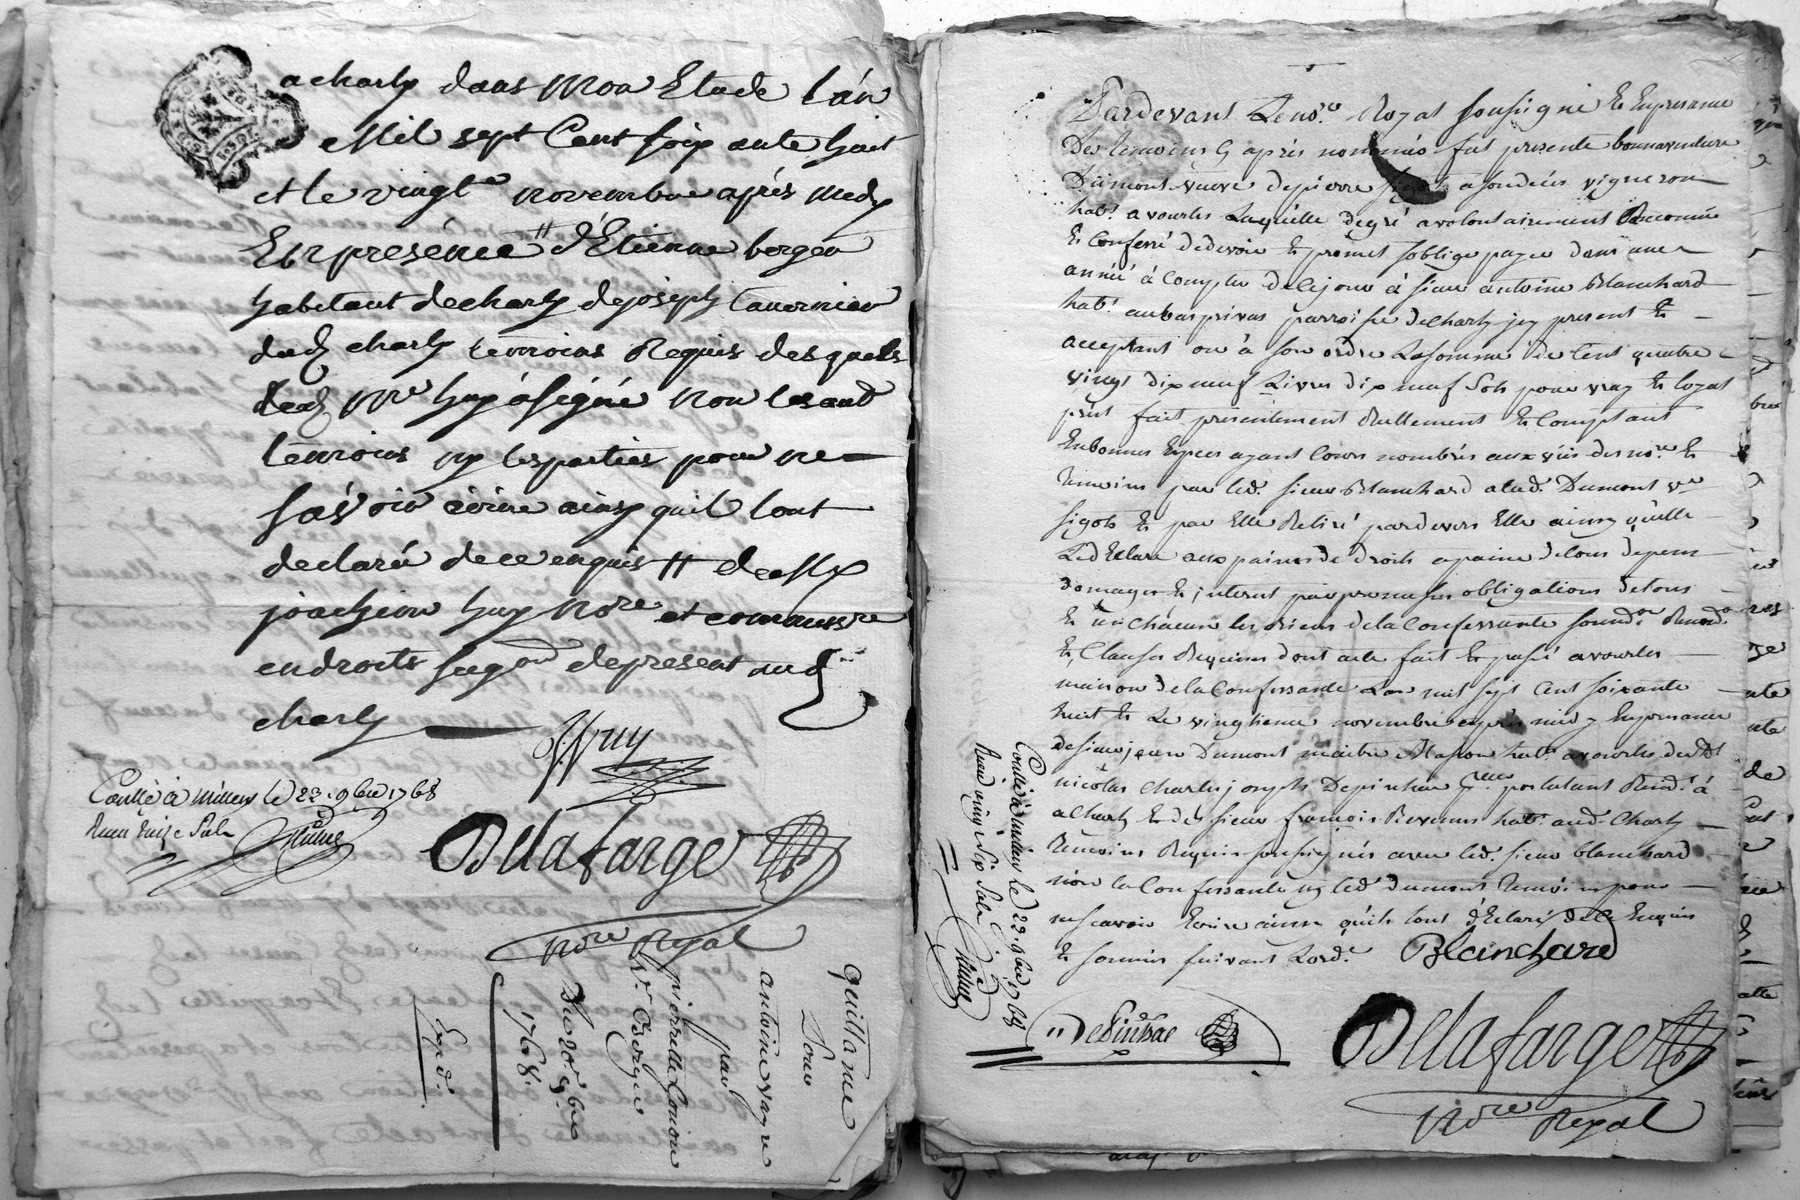 a charly dans mon Etude l'an
Mil sept Cent soixante huit
et le vingt novembre après medy
En presénce d'Étienne borgon
habitant de charly de joseph tavernier
dud charly temoins Requis desquels
led Mre huy a signé non lesd
temoins ny les parties pour ne
sávoir écrire ainsy quil lont
declaré de ce enquis # de Me
joachim huy Nore et commissre
en droits seig de present aud
charly
J. huy
Conllé à millery le 22 9bre 1768
Reçu treize sols
Delafarge
Nore Royal
quittance
Pour
antoine vagne
par
pierrette Conion
Ve Borgon
Du 20e 9bre
1768.
Exp d.
Pardevant Le nore Royal soussigné Et En presence
Des temoins cy après nommés fut presente bonnaventure
Dumont veuve de pierre sigot a son decés vigneron
habt a vourles Laquelle de gré a volontairement Reconnu
Et Confessé de devoir Et promet soblige payer dans une
année à Compter de ce jour à sieur antoine Blanchard
habt au bas privas parroisse de Charly icy present Et
acceptant ou à son ordre La somme de Cent quatre
vingt dix neuf Livres dix neuf Sols pour vray Et loyal
prêt fait presentement Reellement Et Comptant
En bonnes Especes ayant Cours nombrés aux vües des nore Et
temoins par led. sieur Blanchard a lad. Dumont ve
sigot Et par Elle Retiré pardevers Elle ainsy qu'elle
Le déClare aux peines de droit a peine de tous depens
domages Et interest par promesses obligations de tous
Et un chacuns les biens de la Confessante soumd. Renond.
Et Clauses Requises dont acte fait Et passé a vourles
maison de la Confessante L'an mil sept Cent soixante
huit Et Le vingtieme novembre après midy En presence
de sieur jean Dumont maitre Maçon habt a vourles de Me
nicolas Charles joseph Depinhac postulant Resid. à
a Charly Et de sieur françois Revenus habt aud. Charly
temoins Requis soussignés avec led. sieur blanchard
non la Confessante ny led. dumont temoin pour
ne scavoir Ecrire ainsi qu'ils lont déClaré de ce Enquis
Et sommés suivant Lord.e Blanchard
DePinhac
Delafarge
Nore Royal
Conllé à millery le 22 9bre 1768
Reçu vingt six sols